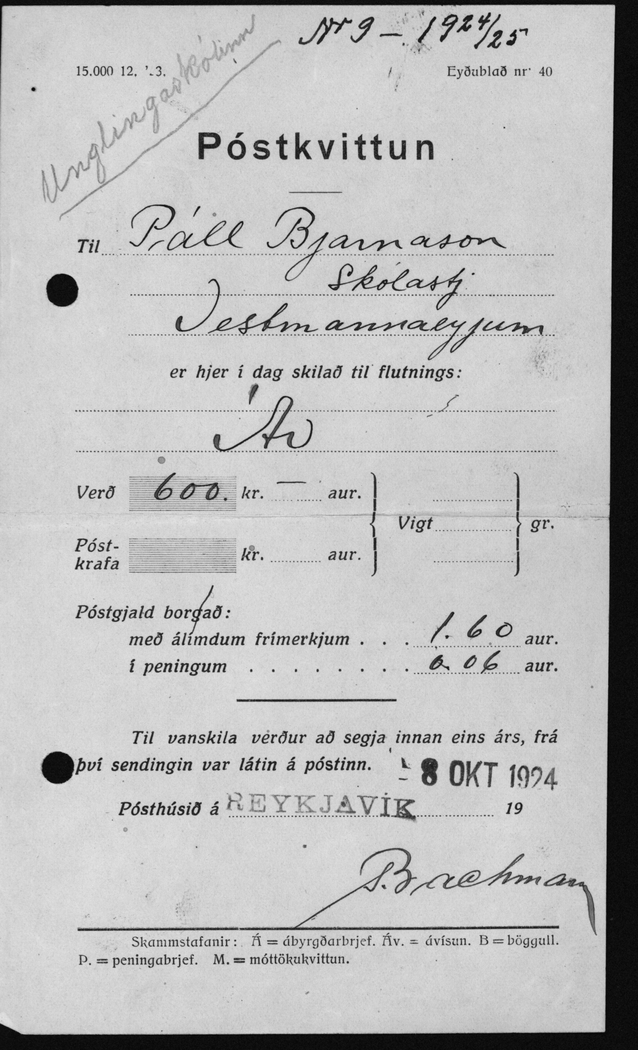 Nr 9 - 1924/25
15.000 12. '23.
Eyðublað nr· 40
Unglingaskólinn
Póstkvittun
Til Páll Bjarnason
Skólastj
Vestmannaeyjum
er hjer í dag skilað til flutnings:
Áv
Verð 600. kr. — aur.
Vigt gr.
Póst-
krafa kr. aur.
Póstgjald borgað:
með álímdum frímerkjum . . . 1.60 aur.
í peningum . . . . . . . . 0.06 aur.
Til vanskila verður að segja innan eins árs, frá
því sendingin var látin á póstinn. - 8 OKT 1924
Pósthúsið á REYKJAVÍK 19
P. Bachmann
Skammstafanir: Á = ábyrgðarbrjef. Áv. = ávísun. B = böggull.
P. = peningabrjef. M. = móttökukvittun.